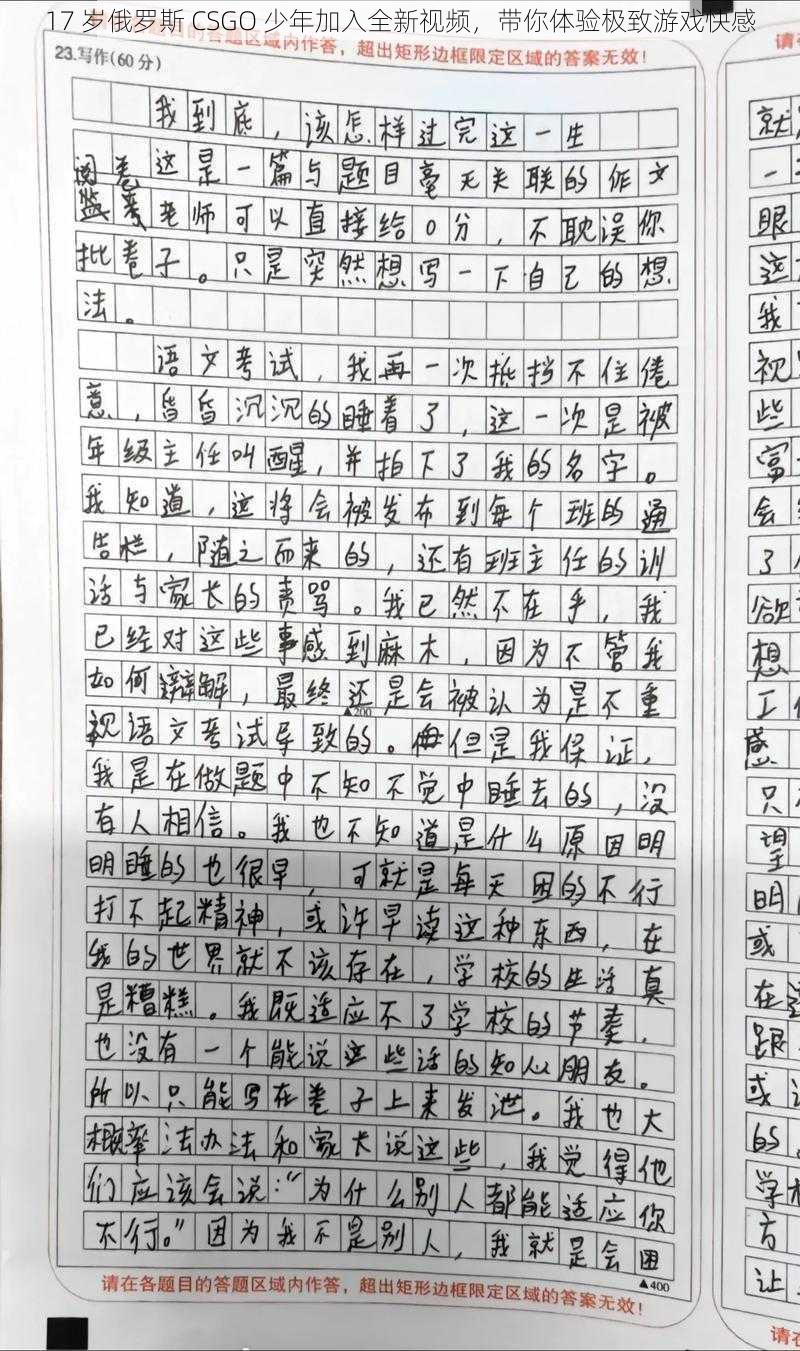 17 岁俄罗斯 CSGO 少年加入全新视频，带你体验极致游戏快感
请在各题目的答题区域内作答，超出矩形边框限定区域的答案无效！
23.写作(60分)
我到底，该怎样过完这一生
阅卷 这是一篇与题目毫无关联的作文
老师可以直接给0分，不耽误你
批卷子。只是突然想写一下自己的想
法。
语文考试，我再一次抵挡不住倦
意，昏昏沉沉的睡着了，这一次是被
年级主任叫醒，并拍下了我的名字。
我知道，这将会被发布到每个班的通
告栏，随之而来的，还有班主任的训
话与家长的责骂。我已然不在乎，我
已经对这些事感到麻木，因为不管我
如何辩解，最终还是会被认为是不重
▲200
视语文考试导致的。但是我保证，
我是在做题中不知不觉中睡去的，没
有人相信。我也不知道是什么原因明
明睡的也很早，可就是每天困的不行
打不起精神，或许早读这种东西，在
我的世界就不该存在，学校的生活真
是糟糕。我既适应不了学校的节奏，
也没有一个能说这些话的知心朋友。
所以只能写在卷子上来发泄。我也大
概率没办法和家长说这些，我觉得他
们应该会说：“为什么别人都能适应你
不行。”因为我不是别人，我就是会困
▲400
请在各题目的答题区域内作答，超出矩形边框限定区域的答案无效！
请在
就
一
眼
这
我
视
些
富
会
了
欲
想
工
感
只
望
明
或
在
跟
或
的。
学校
方
让
请在